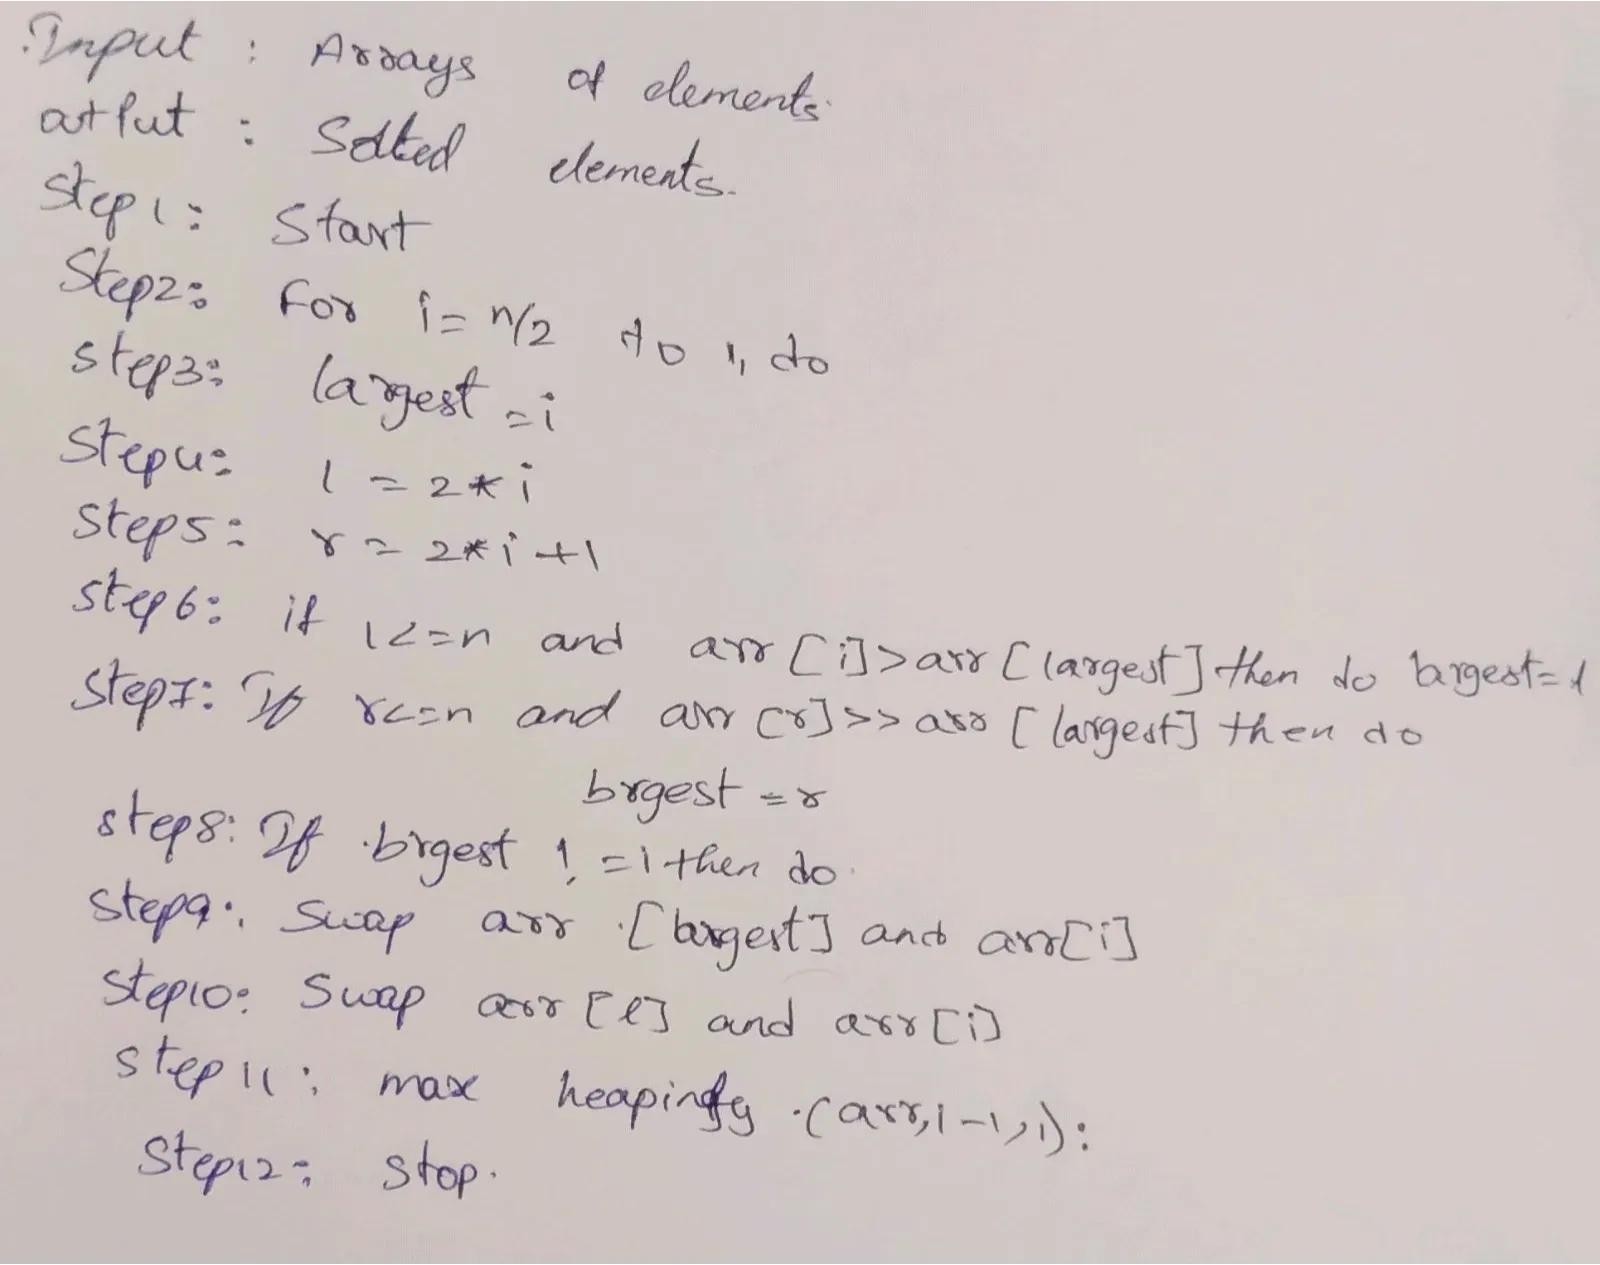 Input : Arrays of elements.
output : Sorted elements.
Step 1: Start
Step2: For i= n/2 to 1, do
step3: largest =i
Step4: l = 2*i
Step5: r = 2*i+1
step6: if l<=n and arr [i]>arr [largest] then do largest=l
Step7: If r<=n and arr [r]>>arr [largest] then do
largest =r
step8: If largest != i then do
step9: Swap arr [largest] and arr[i]
Step10: Swap arr [l] and arr [i]
step 11: max heapingfy (arr,i-1,i):
Step12: stop.